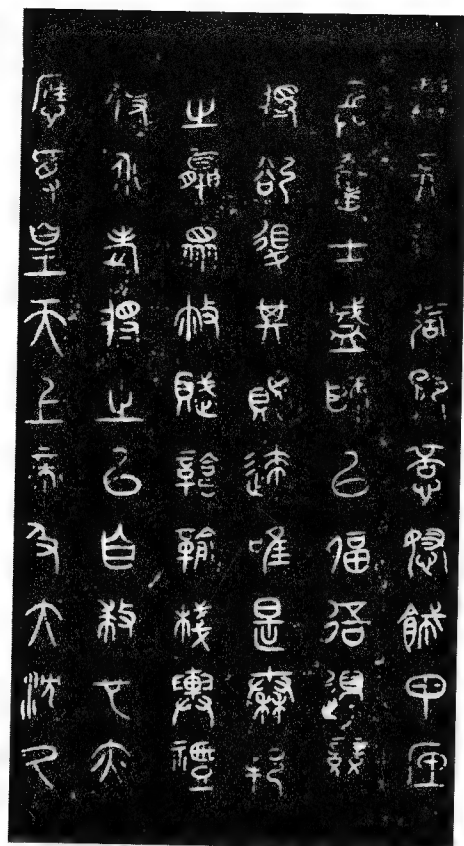 意怒飾甲底
兵奮士盛師以偪俉邊競
將欲復其賕迹唯是秦邦
之羸眾敝賦鞈輸棧輿禮
使介老將之以自救也亦
應受皇天上帝及大沈久